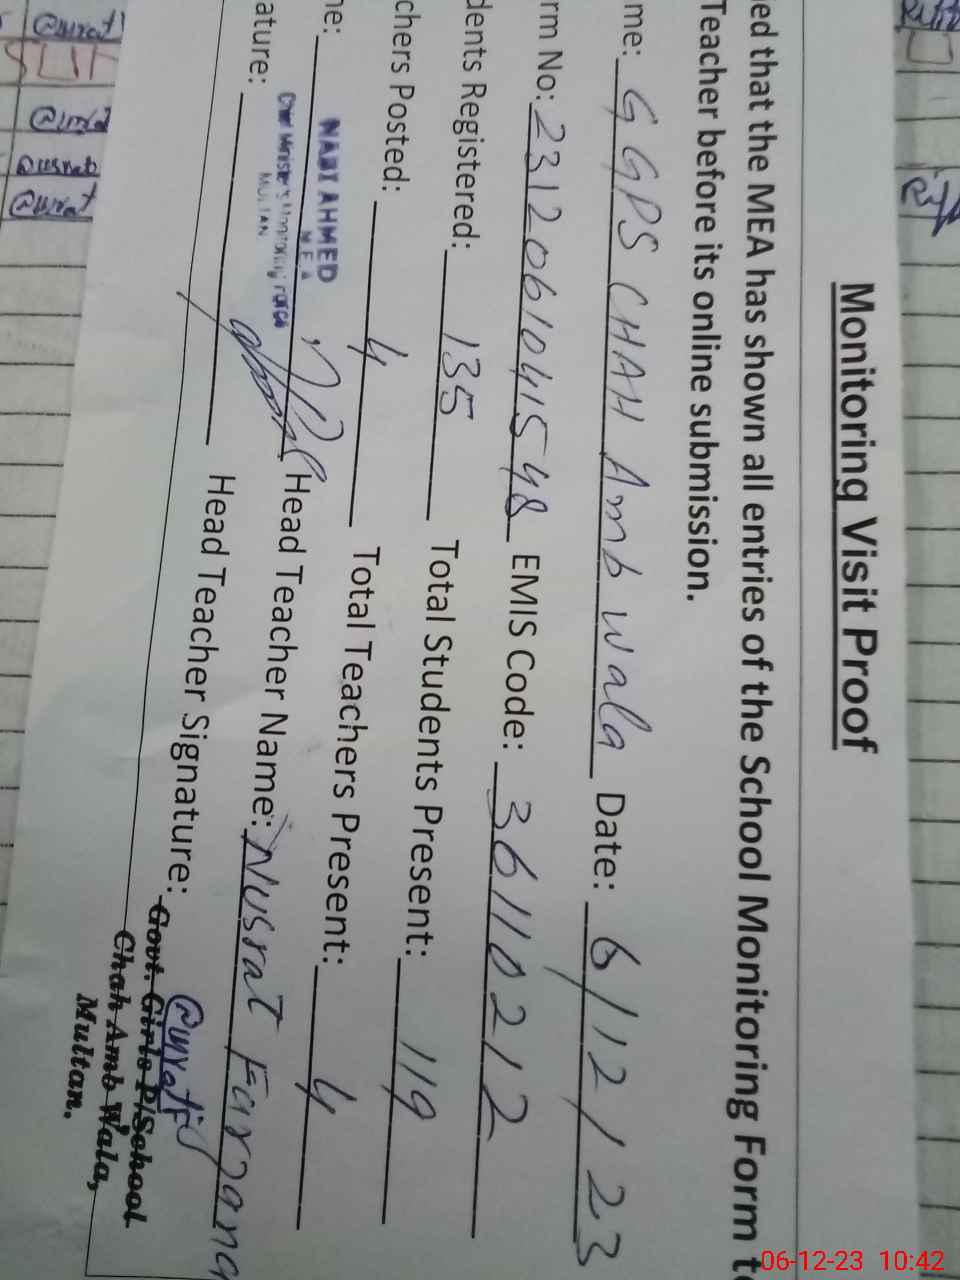 Monitoring Visit Proof
ied that the MEA has shown all entries of the School Monitoring Form t
Teacher before its online submission.
me: GGPS CHAH Amb Wala Date: 6/12/23
rm No: 231206104154548 EMIS Code: 36110212
dents Registered: 135 Total Students Present: 119
chers Posted: 4 Total Teachers Present: 4
ne: NABI AHMED Head Teacher Name: Nusrat Farzana
MEA
Chief Minister's Monitoring Force
MULTAN
ature: Head Teacher Signature:
Govt. Girls P/School
Chah Amb Wala,
Multan.
06-12-23 10:42